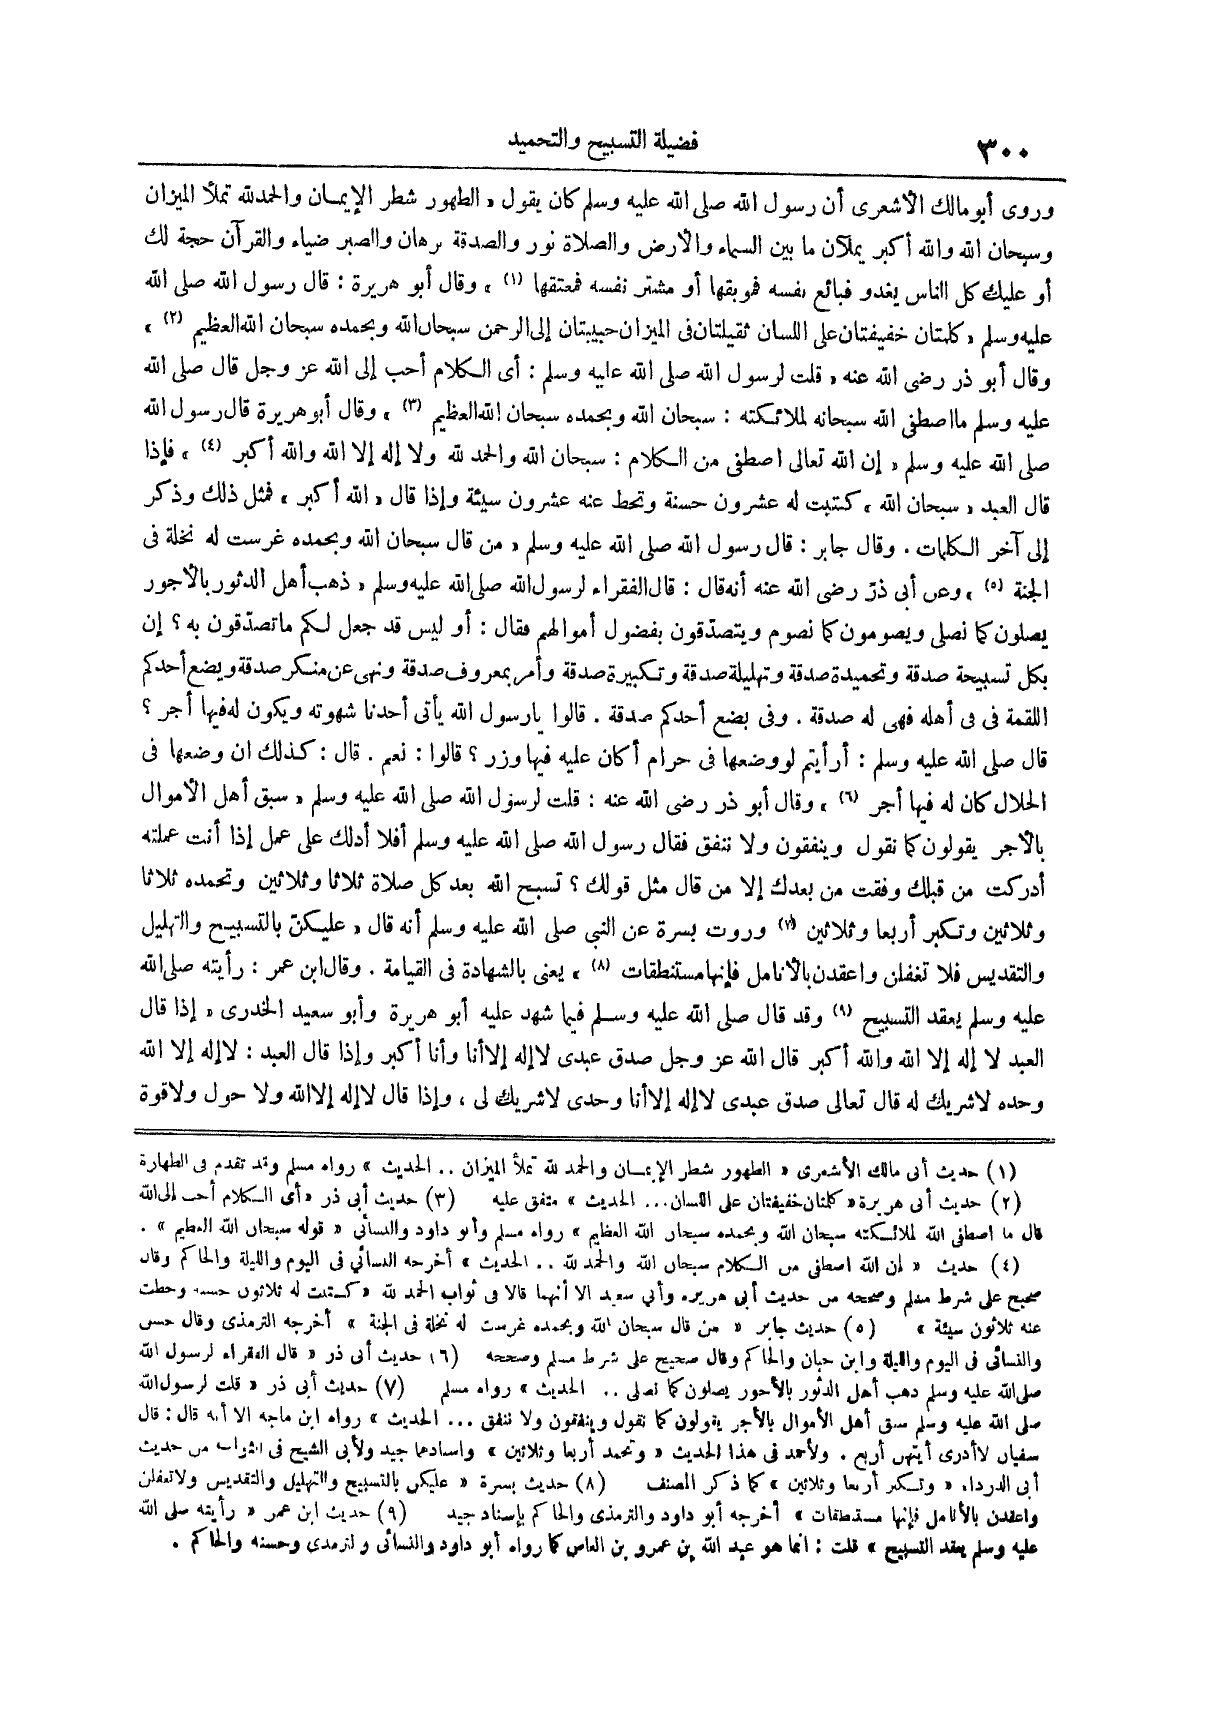 ٣٠٠
فضيلة التسبيح والتحميد
وروى أبو مالك الأشعرى أن رسول الله صلى الله عليه وسلم كان يقول « الطهور شطر الإيمـان والحمد لله تملأ الميزان
وسبحان الله والله أكبر يملآن ما بين السماء والأرض والصلاة نور والصدقة برهان والصبر ضياء والقرآن حجة لك
أو عليك كل الناس يغدو فبائع نفسه فموبقها أو مشتر نفسه فمعتقها (١) » وقال أبو هريرة : قال رسول الله صلى الله
عليه وسلم « كلمتان خفيفتان على اللسان ثقيلتان فى الميزان حبيبتان إلى الرحمن سبحان الله وبحمده سبحان الله العظيم (٢) »
وقال أبو ذر رضى الله عنه « قلت لرسول الله صلى الله عليه وسلم : أى الـكلام أحب إلى الله عز وجل قال صلى الله
عليه وسلم ما اصطفى الله سبحانه لملائـكته : سبحان الله وبحمده سبحان الله العظيم (٣) » وقال أبو هريرة قال رسول الله
صلى الله عليه وسلم « إن الله تعالى اصطفى من الـكلام : سبحان الله والحمد لله ولا إله إلا الله والله أكبر (٤) » فإذا
قال العبد « سبحان الله » كـتبت له عشرون حسنة وتحط عنه عشرون سيئة وإذا قال « الله أكبر » فمثل ذلك وذكر
إلى آخر الـكلمات . وقال جابر : قال رسول الله صلى الله عليه وسلم « من قال سبحان الله وبحمده غرست له نخلة فى
الجنة (٥) » وعن أبى ذرّ رضى الله عنه أنه قال : قال الفقراء لرسول الله صلى الله عليه وسلم « ذهب أهل الدثور بالأجور
يصلون كما نصلى ويصومون كما نصوم ويتصدّقون بفضول أموالهم فقال : أو ليس قد جعل لـكم ما تصدّقون به ؟ إن
بكل تسبيحة صدقة وتحميدة صدقة وتهليلة صدقة وتـكبيرة صدقة وأمر بمعروف صدقة ونهى عن منـكر صدقة ويضع أحدكم
اللقمة فى فى أهله فهى له صدقة . وفى بضع أحدكم صدقة . قالوا يارسول الله يأتى أحدنا شهوته ويكون له فيها أجر ؟
قال صلى الله عليه وسلم : أرأيتم لو وضعها فى حرام أكان عليه فيها وزر ؟ قالوا : نعم . قال : كـذلك ان وضعها فى
الحلال كان له فيها أجر (٦) » وقال أبو ذر رضى الله عنه : قلت لرسول الله صلى الله عليه وسلم « سبق أهل الأموال
بالأجر يقولون كما نقول وينفقون ولا ننفق فقال رسول الله صلى الله عليه وسلم أفلا أدلك على عمل إذا أنت عملته
أدركت من قبلك وفقت من بعدك إلا من قال مثل قولك ؟ تسبح الله بعد كل صلاة ثلاثا وثلاثين وتحمده ثلاثا
وثلاثين وتكبر أربعا وثلاثين (٧) وروت بسرة عن النبى صلى الله عليه وسلم أنه قال « عليـكنّ بالتسبيـح والتهليل
والتقديس فلا تغفلن واعقدن بالأنامل فإنها مستنطقات (٨) » يعنى بالشهادة فى القيامة . وقال ابن عمر : رأيته صلى الله
عليه وسلم يعقد التسبيح (٩) وقد قال صلى الله عليه وسـلم فيما شهد عليه أبو هريرة وأبو سعيد الخدرى « إذا قال
العبد لا إله إلا الله والله أكبر قال الله عز وجل صدق عبدى لا إله إلا أنا وأنا أكبر وإذا قال العبد : لا إله إلا الله
وحده لا شريك له قال تعالى صدق عبدى لا إله إلا أنا وحدى لا شريك لى ، وإذا قال لا إله إلا الله ولا حول ولا قوة
(١) حديث أبى مالك الأشعرى « الطهور شطر الإيمـان والحمد لله تملأ الميزان .. الحديث » رواه مسلم وقد تقدم فى الطهارة
(٢) حديث أبى هريرة « كلمتان خفيفتان على اللسان... الحديث » متفق عليه (٣) حديث أبى ذر « أى الـكلام أحب إلى الله
قال ما اصطفى الله لملائـكته سبحان الله وبحمده سبحان الله العظيم » رواه مسلم وأبو داود والنسائى « قوله سبحان الله العظيم » .
(٤) حديث « إن الله اصطفى من الـكلام سبحان الله والحمد لله .. الحديث » أخرجه النسائي فى اليوم والليلة والحاكم وقال
صحيح على شرط مسلم وصححه من حديث أبى هريرة وأبي سعيد الا أنهما قالا فى ثواب الحمد لله « كـتبت له ثلاثون حسنة وحطت
عنه ثلاثون سيئة » (٥) حديث جابر « من قال سبحان الله وبحمده غرست له نخلة فى الجنة » أخرجه الترمذى وقال حسن
والنسائى فى اليوم والليلة وابن حبان والحاكم وقال صحيح على شرط مسلم وصححه (٦) حديث أبى ذر « قال الفقراء لرسول الله
صلى الله عليه وسلم ذهب أهل الدثور بالأجور يصلون كما نصلى .. الحديث » رواه مسلم (٧) حديث أبى ذر « قلت لرسول الله
صلى الله عليه وسلم سبق أهل الأموال بالأجر يقولون كما نقول وينفقون ولا ننفق ... الحديث » رواه ابن ماجه الا أنه قال : قال
سفيان لا أدرى أيتهن أربع . ولأحمد فى هذا الحديث « وتحمد أربعا وثلاثين » واسنادهما جيد ولأبى الشيخ فى الثواب من حديث
أبى الدرداء « وتـكبر أربعا وثلاثين » كما ذكر المصنف (٨) حديث بسرة « عليكن بالتسبيح والتهليل والتقديس ولا تغفلن
واعقدن بالأنامل فإنها مستنطقات » أخرجه أبو داود والترمذى والحاكم بإسناد جيد (٩) حديث ابن عمر « رأيته صلى الله
عليه وسلم يعقد التسبيح » قلت : انما هو عبد الله بن عمرو بن العاص كما رواه أبو داود والنسائى والترمذى وحسنه والحاكم .